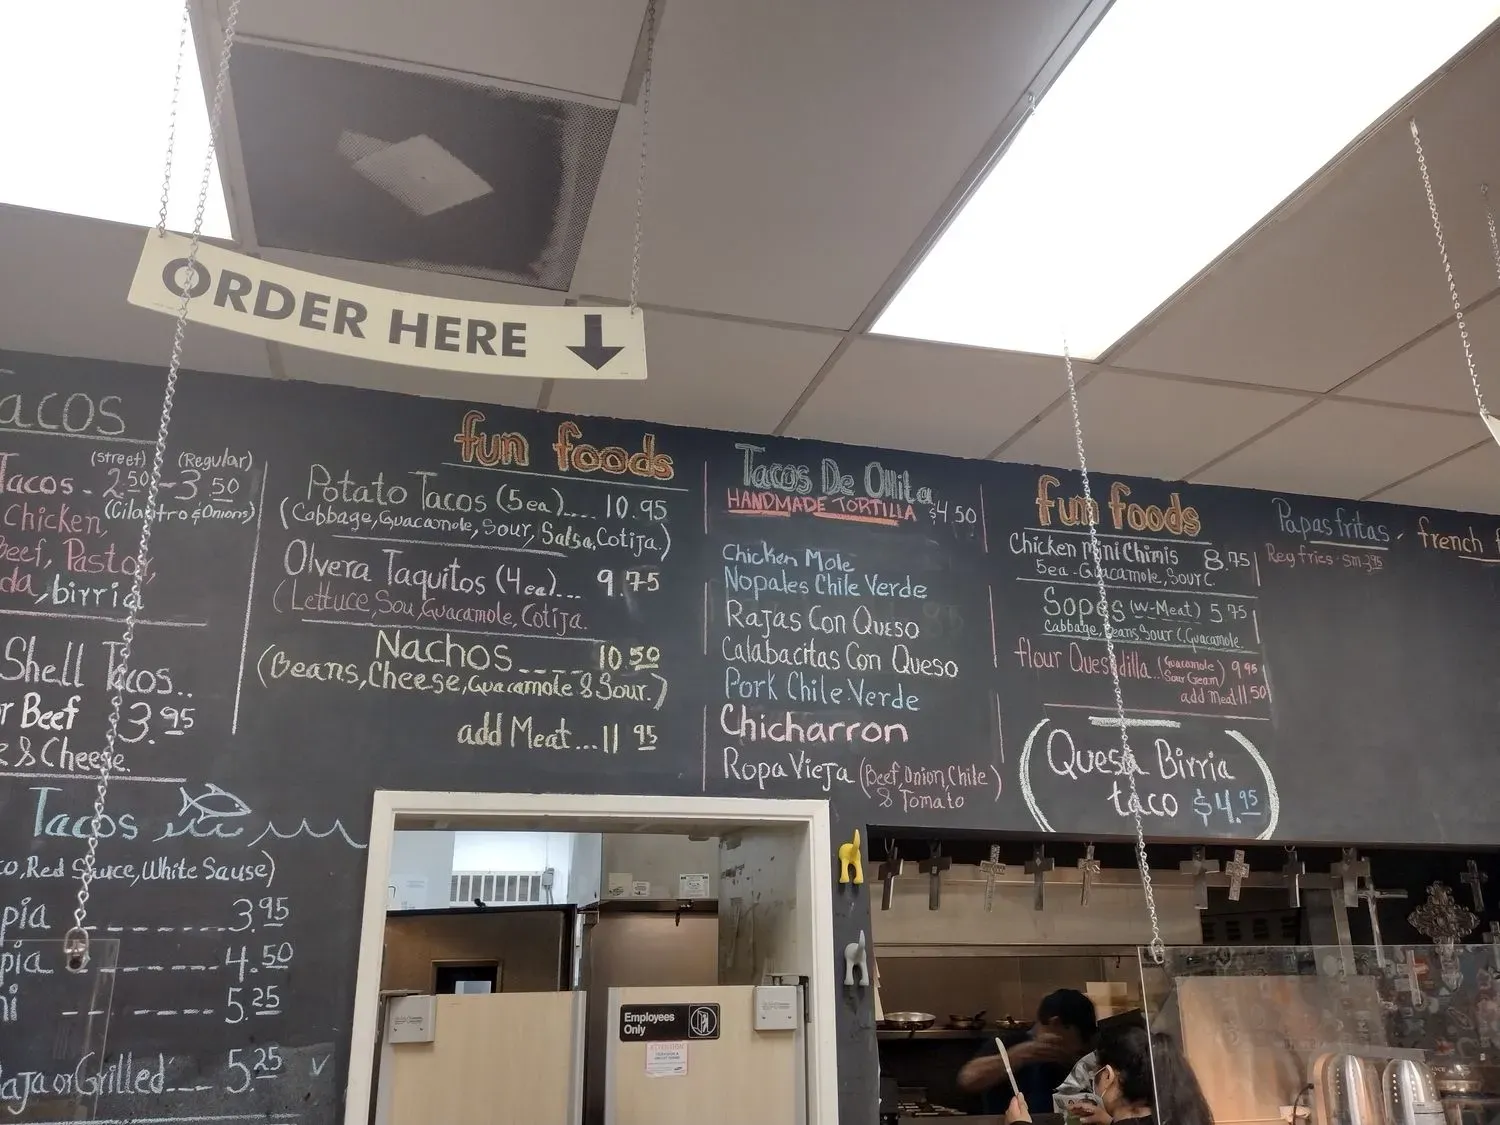 ORDER HERE
acos
(street) (Regular)
Tacos - 2.50 - 3.50
(Cilantro & Onions)
Chicken,
Beef, Pastor,
da, birria
Shell Tacos..
r Beef 3.95
& Cheese.
Tacos
co, Red Sauce, White Sause)
pia 3.95
pia 4.50
hi 5.25
aja or Grilled --- 5.25
fun foods
Potato Tacos (5ea).... 10.95
(Cabbage, Guacamole, Sour, Salsa, Cotija.)
Olvera Taquitos (4ea)... 9.75
(Lettuce, Sou, Guacamole, Cotija.
Nachos ---- 10.50
(Beans, Cheese, Guacamole & Sour.)
add Meat...11.95
Tacos De Ollita
HANDMADE TORTILLA $4.50
Chicken Mole
Nopales Chile Verde
Rajas Con Queso
Calabacitas Con Queso
Pork Chile Verde
Chicharron
Ropa Vieja (Beef, Onion, Chile)
& Tomato
fun foods
Chicken mini Chimis 8.75
5ea - Guacamole, Sour C.
Sopes (w-Meat) 5.75
Cabbage, Beans Sour C, Guacamole.
flour Quesadilla.. (Guacamole Sour Cream) 9.95
add Meat 11.50
(Quesa Birria
taco $4.95)
Papas fritas, french
Reg fries - sm 3.95
Employees
Only
ATTENTION